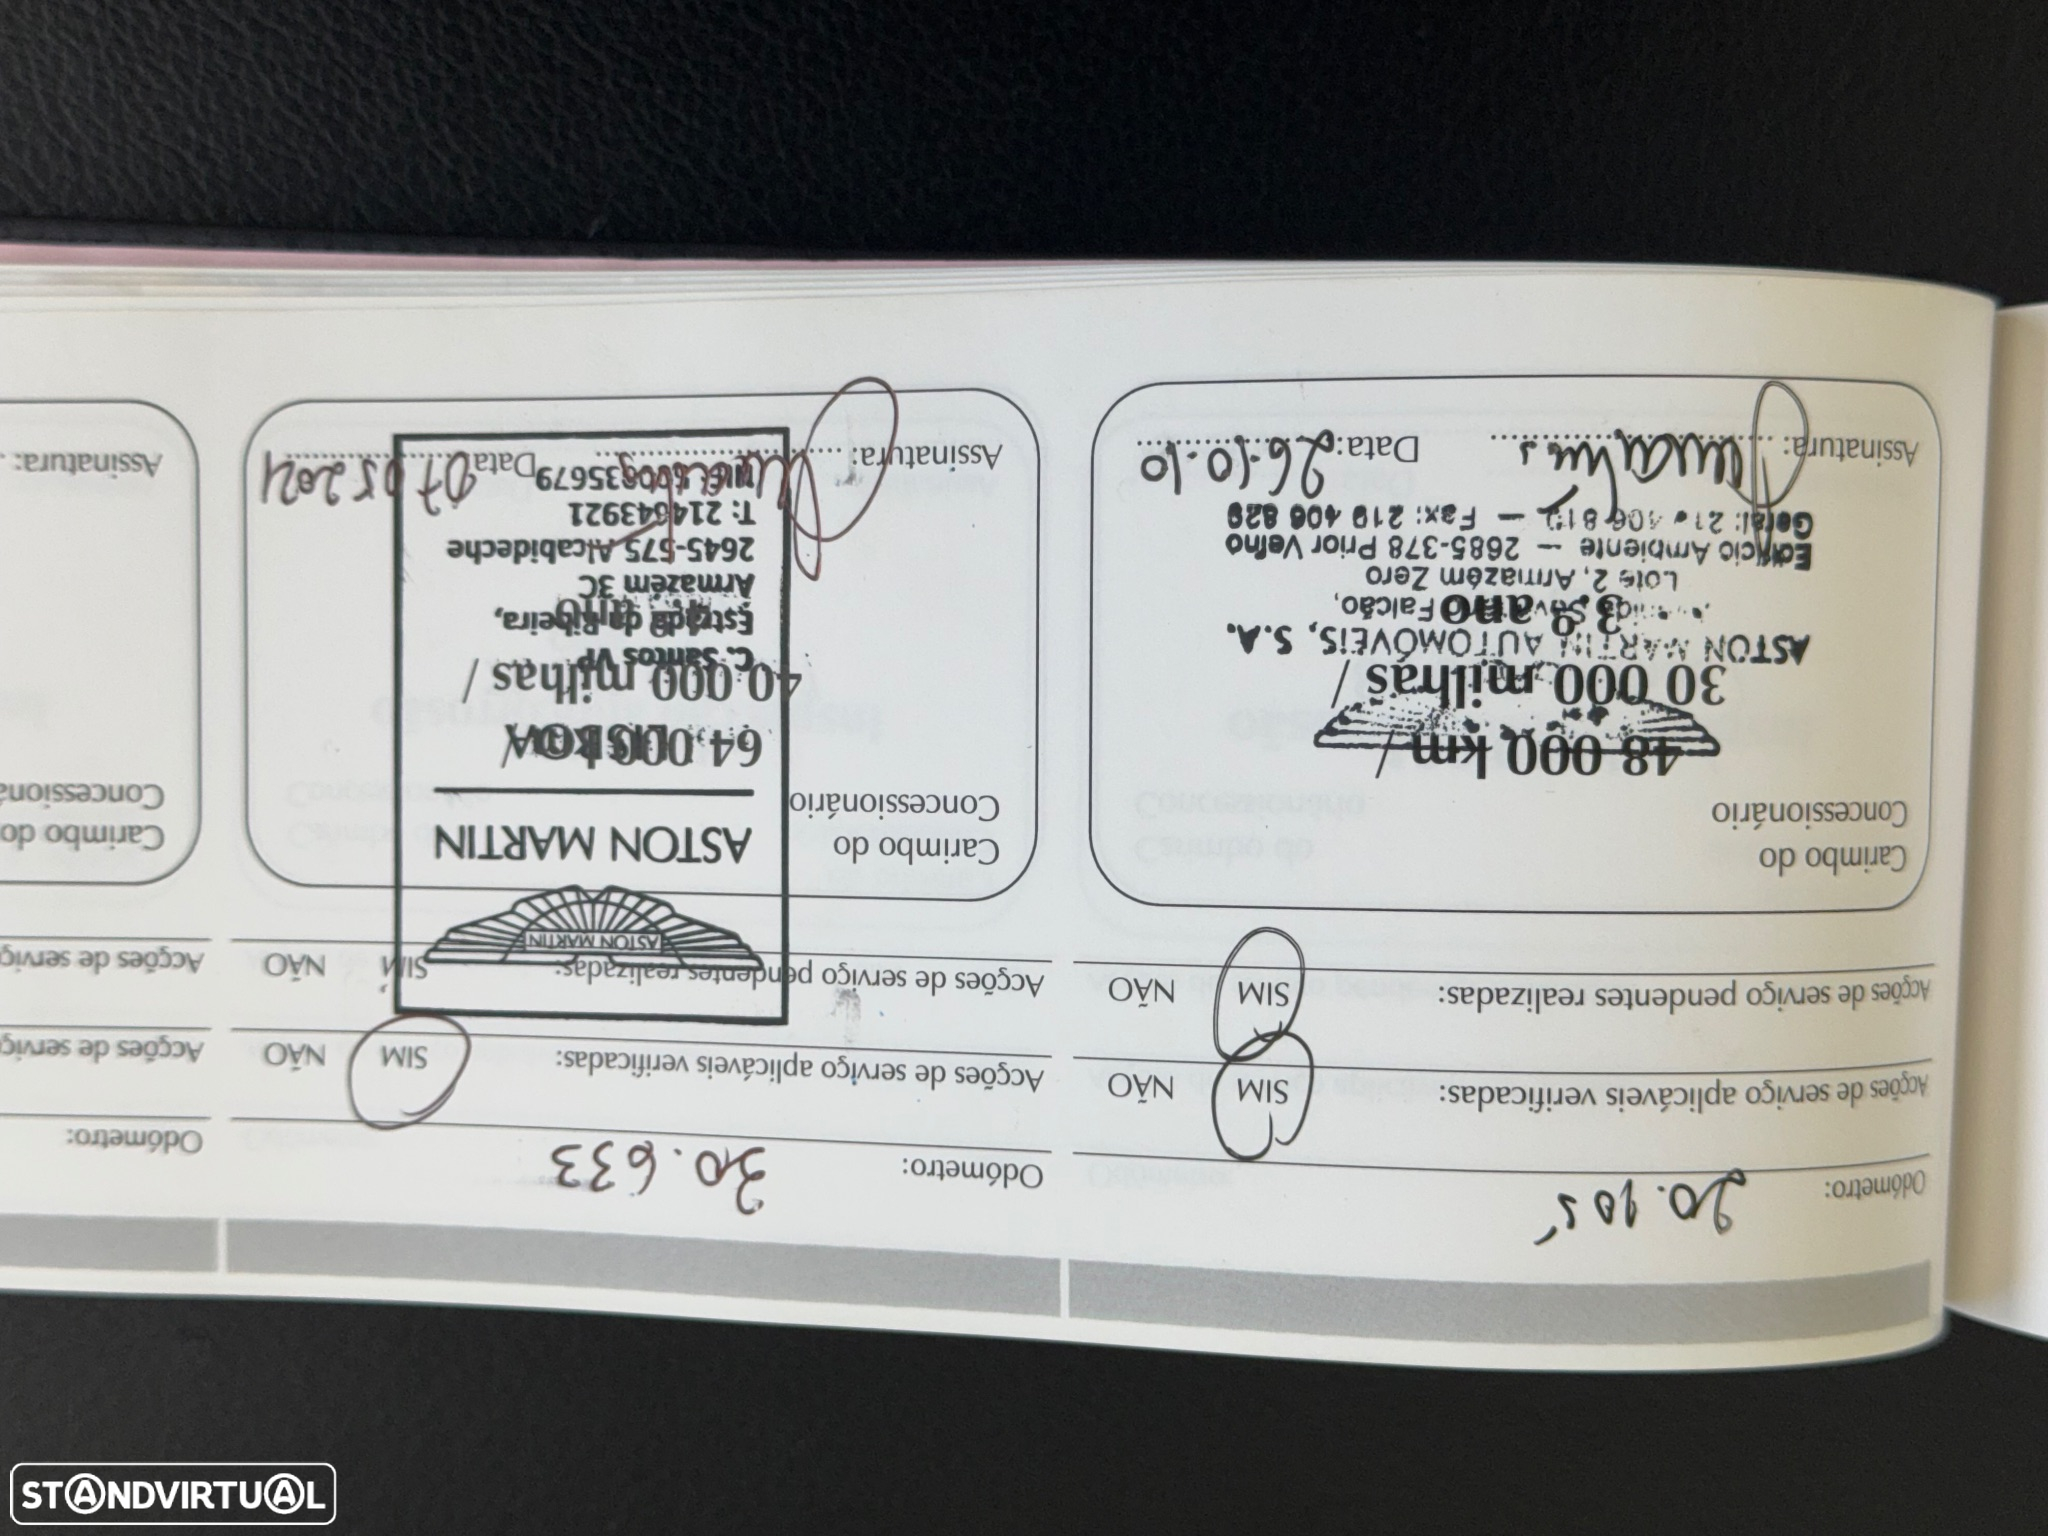 Odómetro: 20.105
Acções de serviço aplicáveis verificadas: SIM NÃO
Acções de serviço pendentes realizadas: SIM NÃO
Carimbo do
Concessionário
48 000 km /
30 000 milhas /
ASTON MARTIN AUTOMÓVEIS, S.A.
3.º ano
Falcão,
Lote 2, Armazém Zero
Edifício Ambiente – 2685-378 Prior Velho
Geral: – Fax: 219 406 829
Assinatura: Data: 26.10.10
Odómetro: 30.633
Acções de serviço aplicáveis verificadas: SIM NÃO
Acções de serviço pendentes realizadas: SIM NÃO
ASTON MARTIN
ASTON MARTIN
Carimbo do
Concessionário
64.000 km /
LISBOA
40 000 milhas /
C. Santos VP
Estrada da Ribeira,
ano
Armazém 3C
2645-575 Alcabideche
T: 214643921
Assinatura: Data 07.05.2021
Odómetro:
Acções de
Acções de
Carimbo do
Assinatura:
STANDVIRTUAL